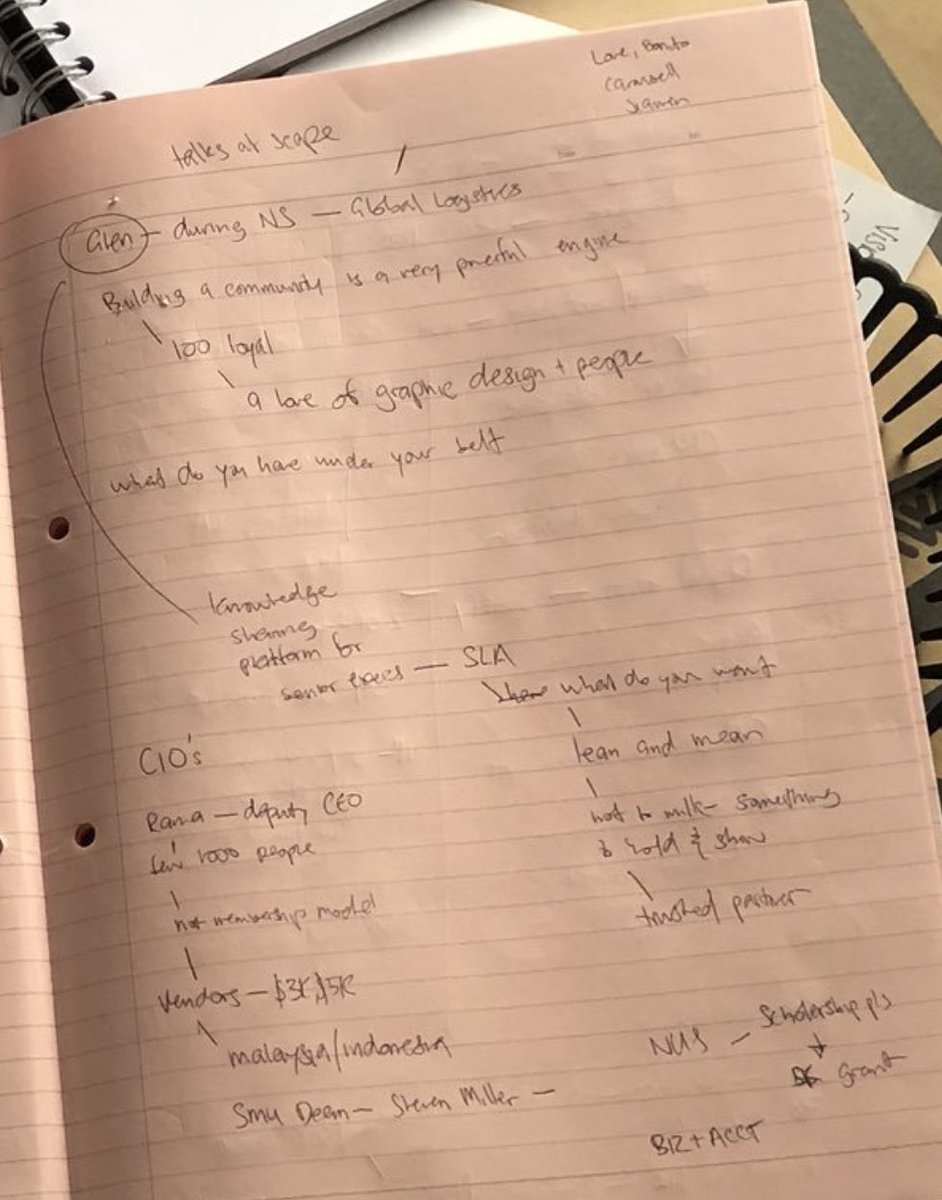 Love, Bonito
Carousell
talks at scape
Glen — during NS — Global Logistics
Building a community is a very powerful engine
100 loyal
a love of graphic design + people
what do you have under your belt
knowledge
sharing
platform for
senior execs — SLA
what do you want
lean and mean
not to milk something
hold & show
trusted partner
CIO's
Rama — deputy CEO
few 1000 people
not membership model
Vendors — $3K $5K
malaysia/indonesia
Smu Dean — Steven Miller —
NUS — Scholarship pls
grant
BIZ + ACCT
VISA